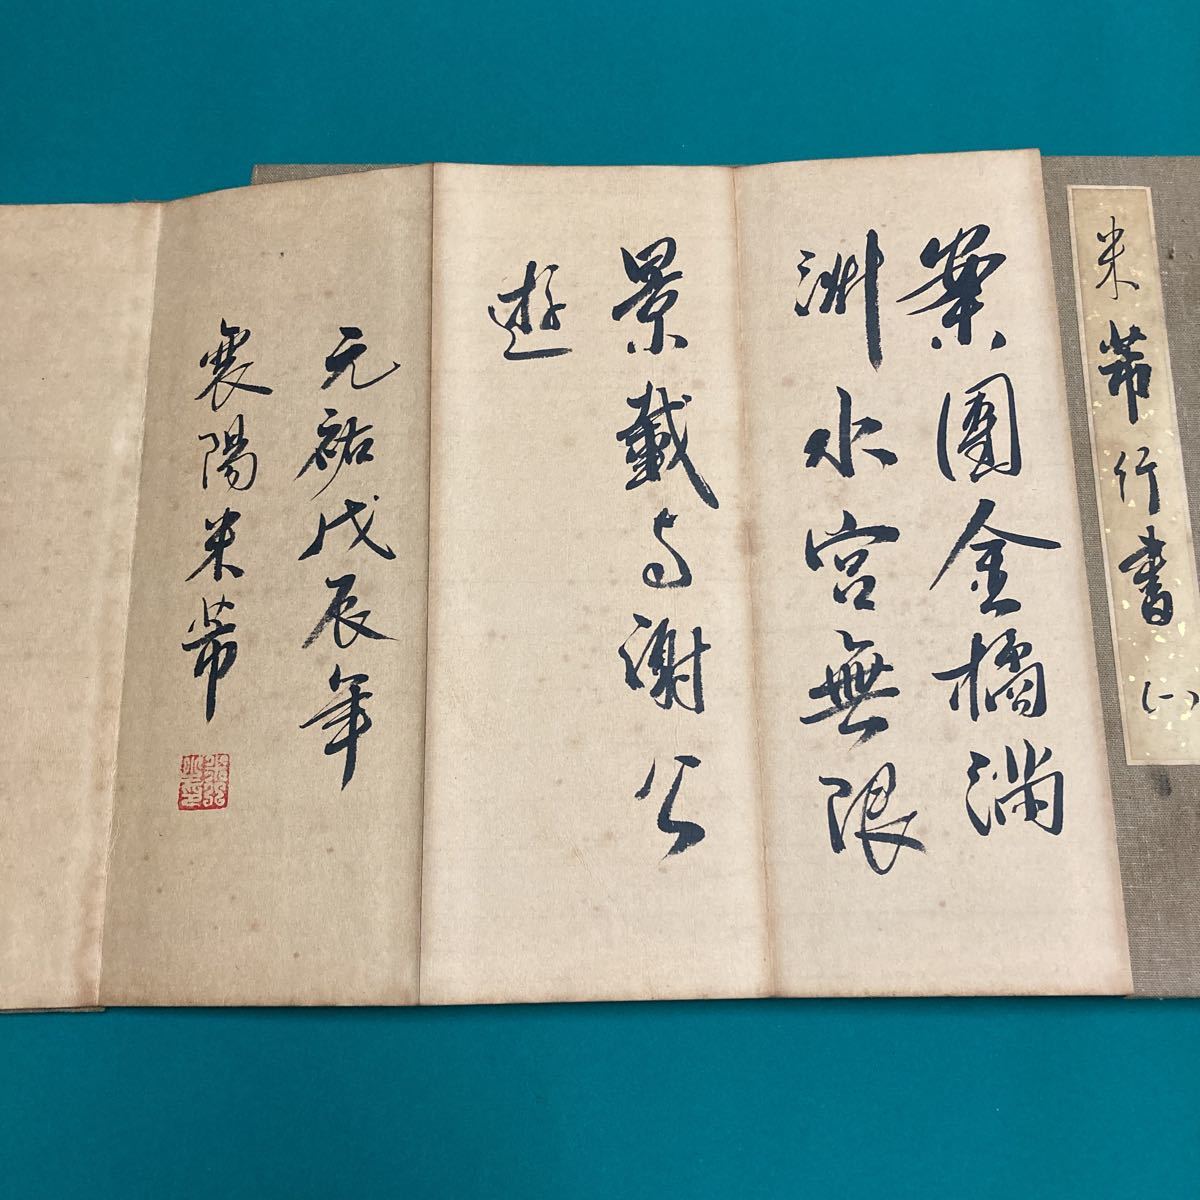 米芾行書(一)
案團金橘滿
洲水宮無限
景載與謝公
遊
元祐戊辰年
襄陽米芾